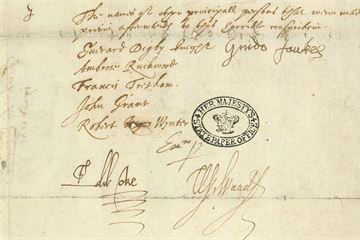 The names of other principall persons that were made
privy afterwards to this horrible conspiracie
Everard Digby knight Guido Faukes
Ambrose Ruckwood
Francis Tresham
John Grant
Robert Wynter
HER MAJESTYS STATE PAPER OFFICE
Edw Coke W Waad